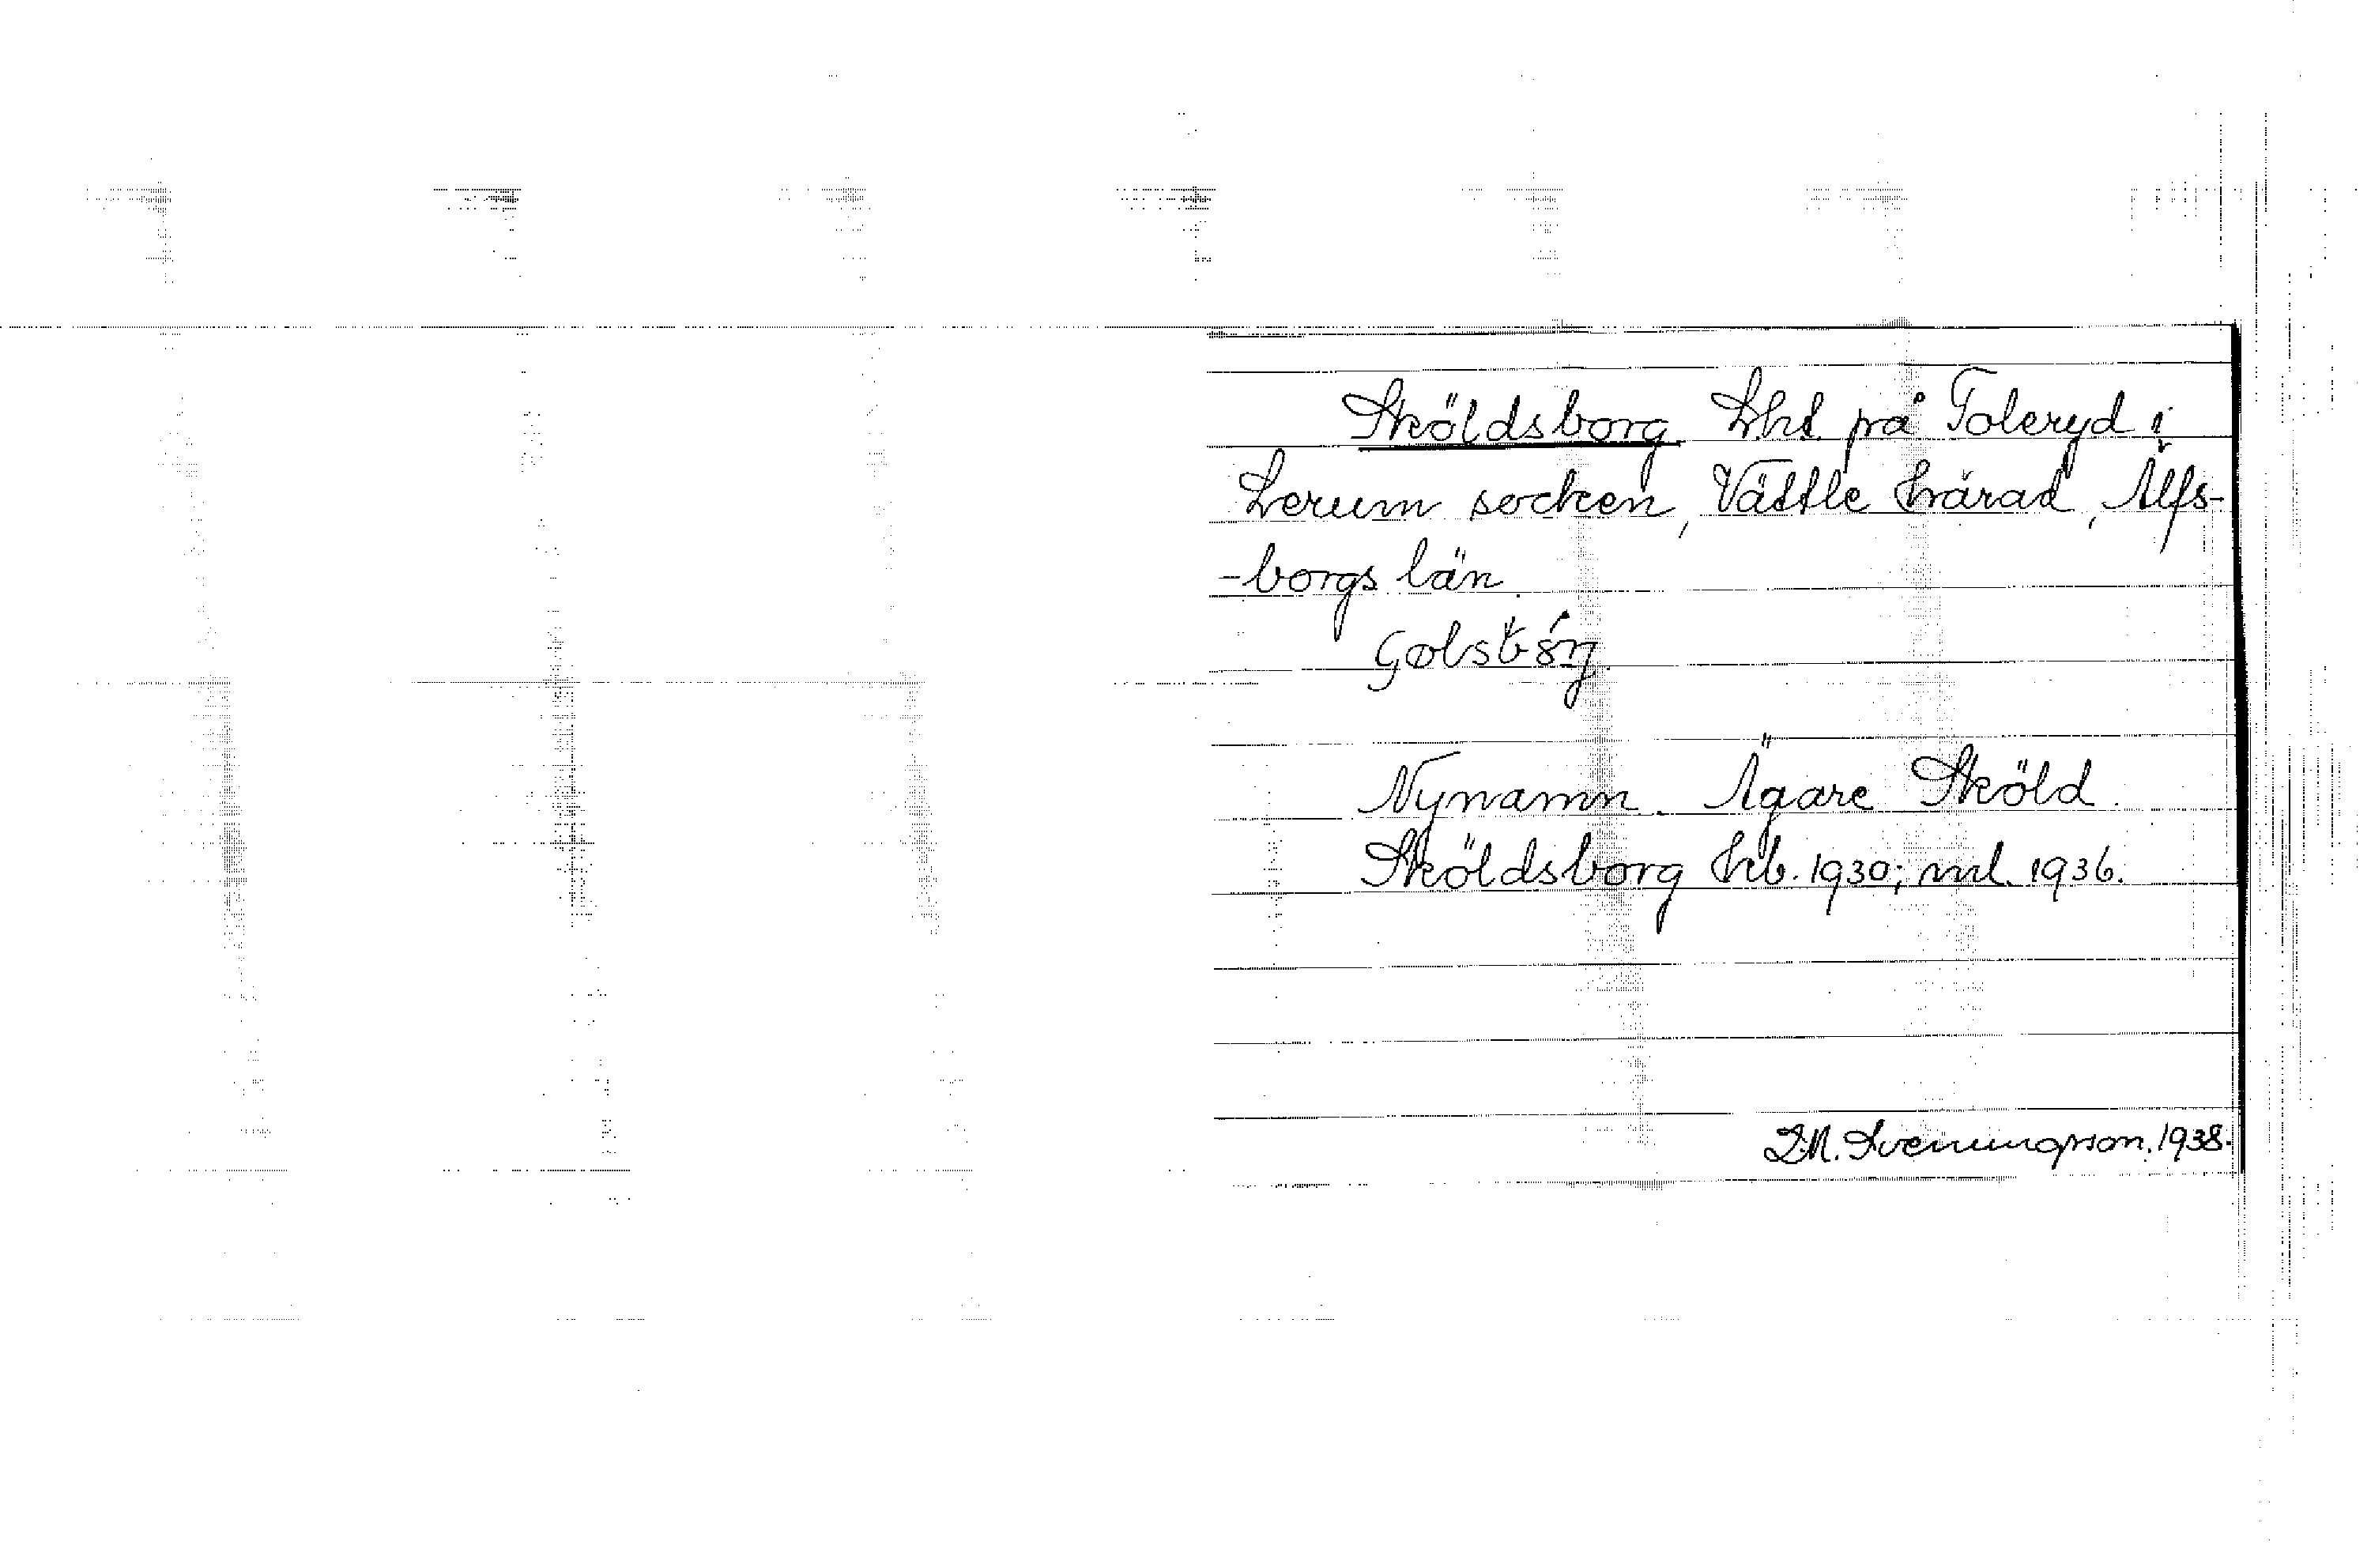 Sköldsborg. Lht. på Toleryd i
Lerum socken, Vättle härad, Älfs-
-borgs län.
Nynamn. Ägare Sköld.
Sköldsborg hfb. 1930; ml. 1936.
Sveningsson. 1938.